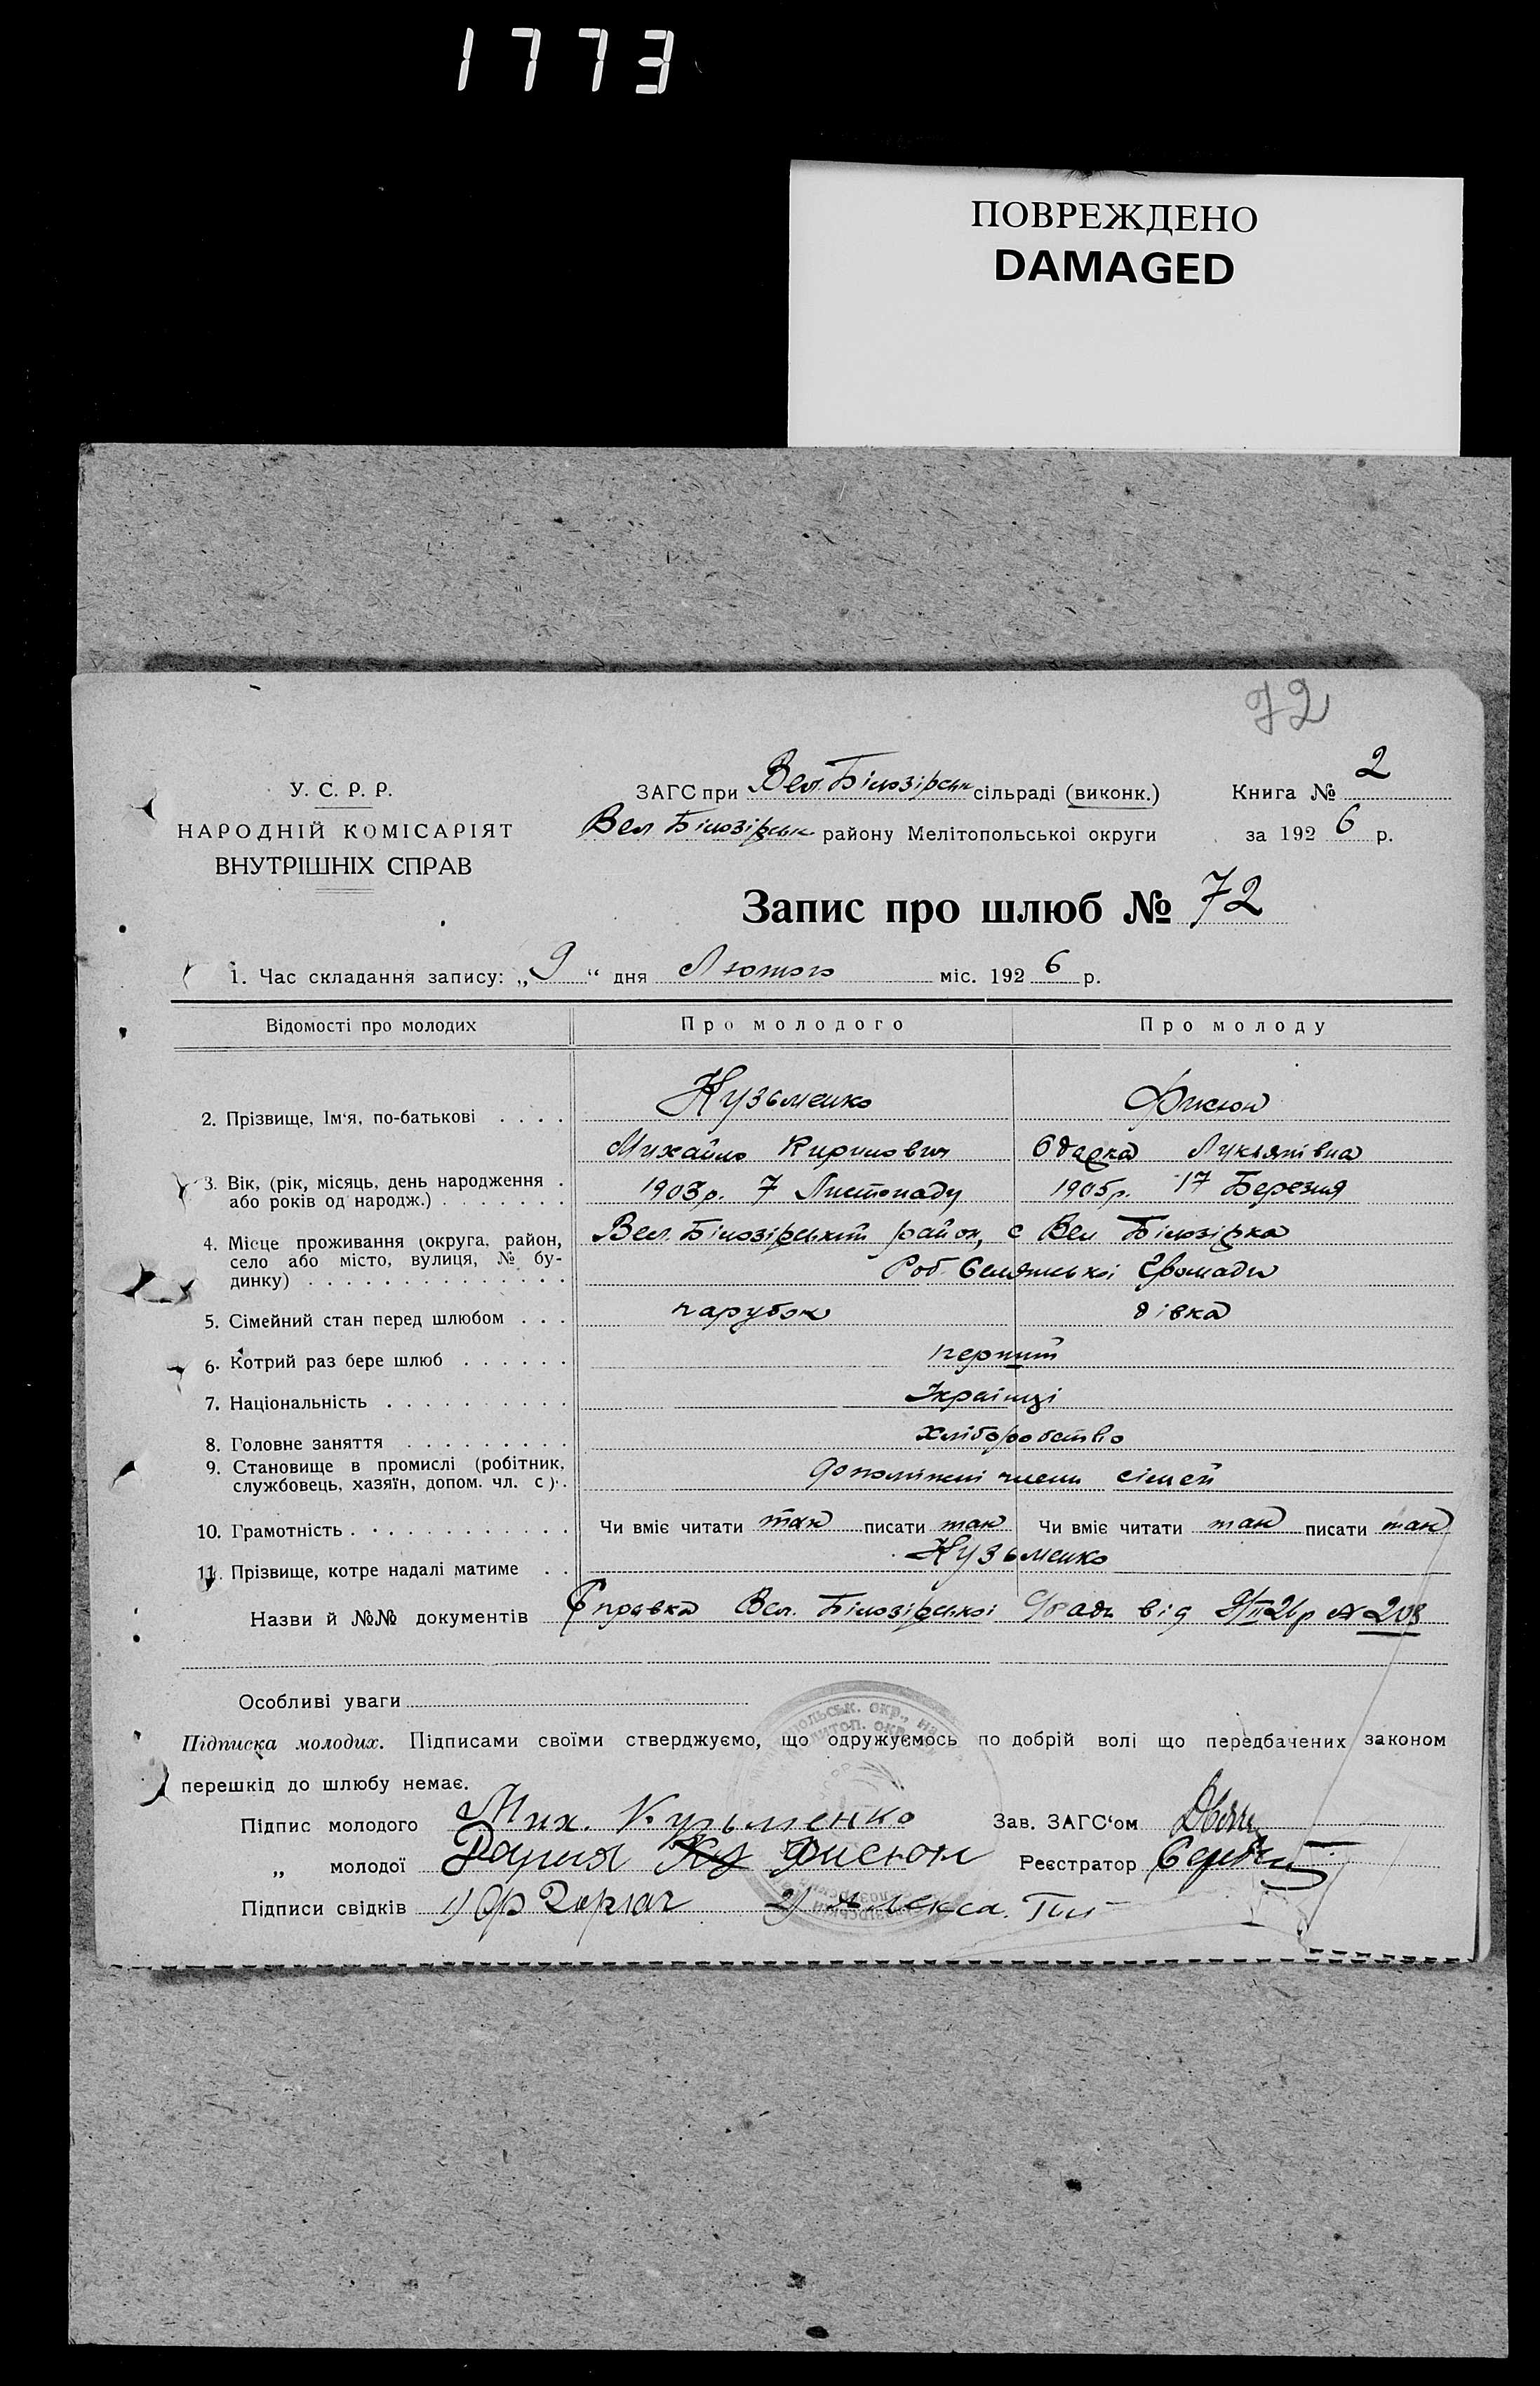 1773
ПОВРЕЖДЕНО
DAMAGED
72
У. С. Р. Р.
НАРОДНІЙ КОМІСАРІЯТ
ВНУТРІШНІХ СПРАВ
ЗАГС при Вел. Білозірськ сільраді (виконк.)
Книга № 2
Вел Білозірськ району Мелітопольської округи
за 1926 р.
Запис про шлюб № 72
1. Час складання запису: „9“ дня Лютого міс. 1926 р.
Відомості про молодих Про молодого Про молоду
2. Прізвище, Ім‘я, по-батькові . . . . Кузьменко Фисюн
Михайло Кирилович Одарка Лукьянівна
3. Вік, (рік, місяць, день народження . або років од народж.) . . . . . . . 1903р. 7 Листопаду 1905р. 17 Березня
4. Місце проживання (округа, район, Вел. Білозірський район, с Вел Білозірка
село або місто, вулиця, № бу-
динку) . . . . . . . . . . . . . . Роб. Селянської Громади
5. Сімейний стан перед шлюбом . . . парубок дівка
6. Котрий раз бере шлюб . . . . . . перший
7. Національність . . . . . . . . . . Українці
8. Головне заняття . . . . . . . . . хліборобство
9. Становище в промислі (робітник,
службовець, хазяїн, допом. чл. с). . члени сімей
10. Грамотність . . . . . . . . . . . . Чи вміє читати так писати так Чи вміє читати так писати так
11. Прізвище, котре надалі матиме . . Кузьменко
Назви й №№ документів Справка Вел. Білозірської С/ради від 9/II 26р № 208
Особливі уваги
Підписка молодих. Підписами своїми стверджуємо, що одружуємось по добрій волі що передбачених законом
перешкід до шлюбу немає.
Підпис молодого Мих. Кузьменко Зав. ЗАГС‘ом
„ молодої Дария Ку Фисюн Реєстратор
Підписи свідків 1) 2) Алекса.